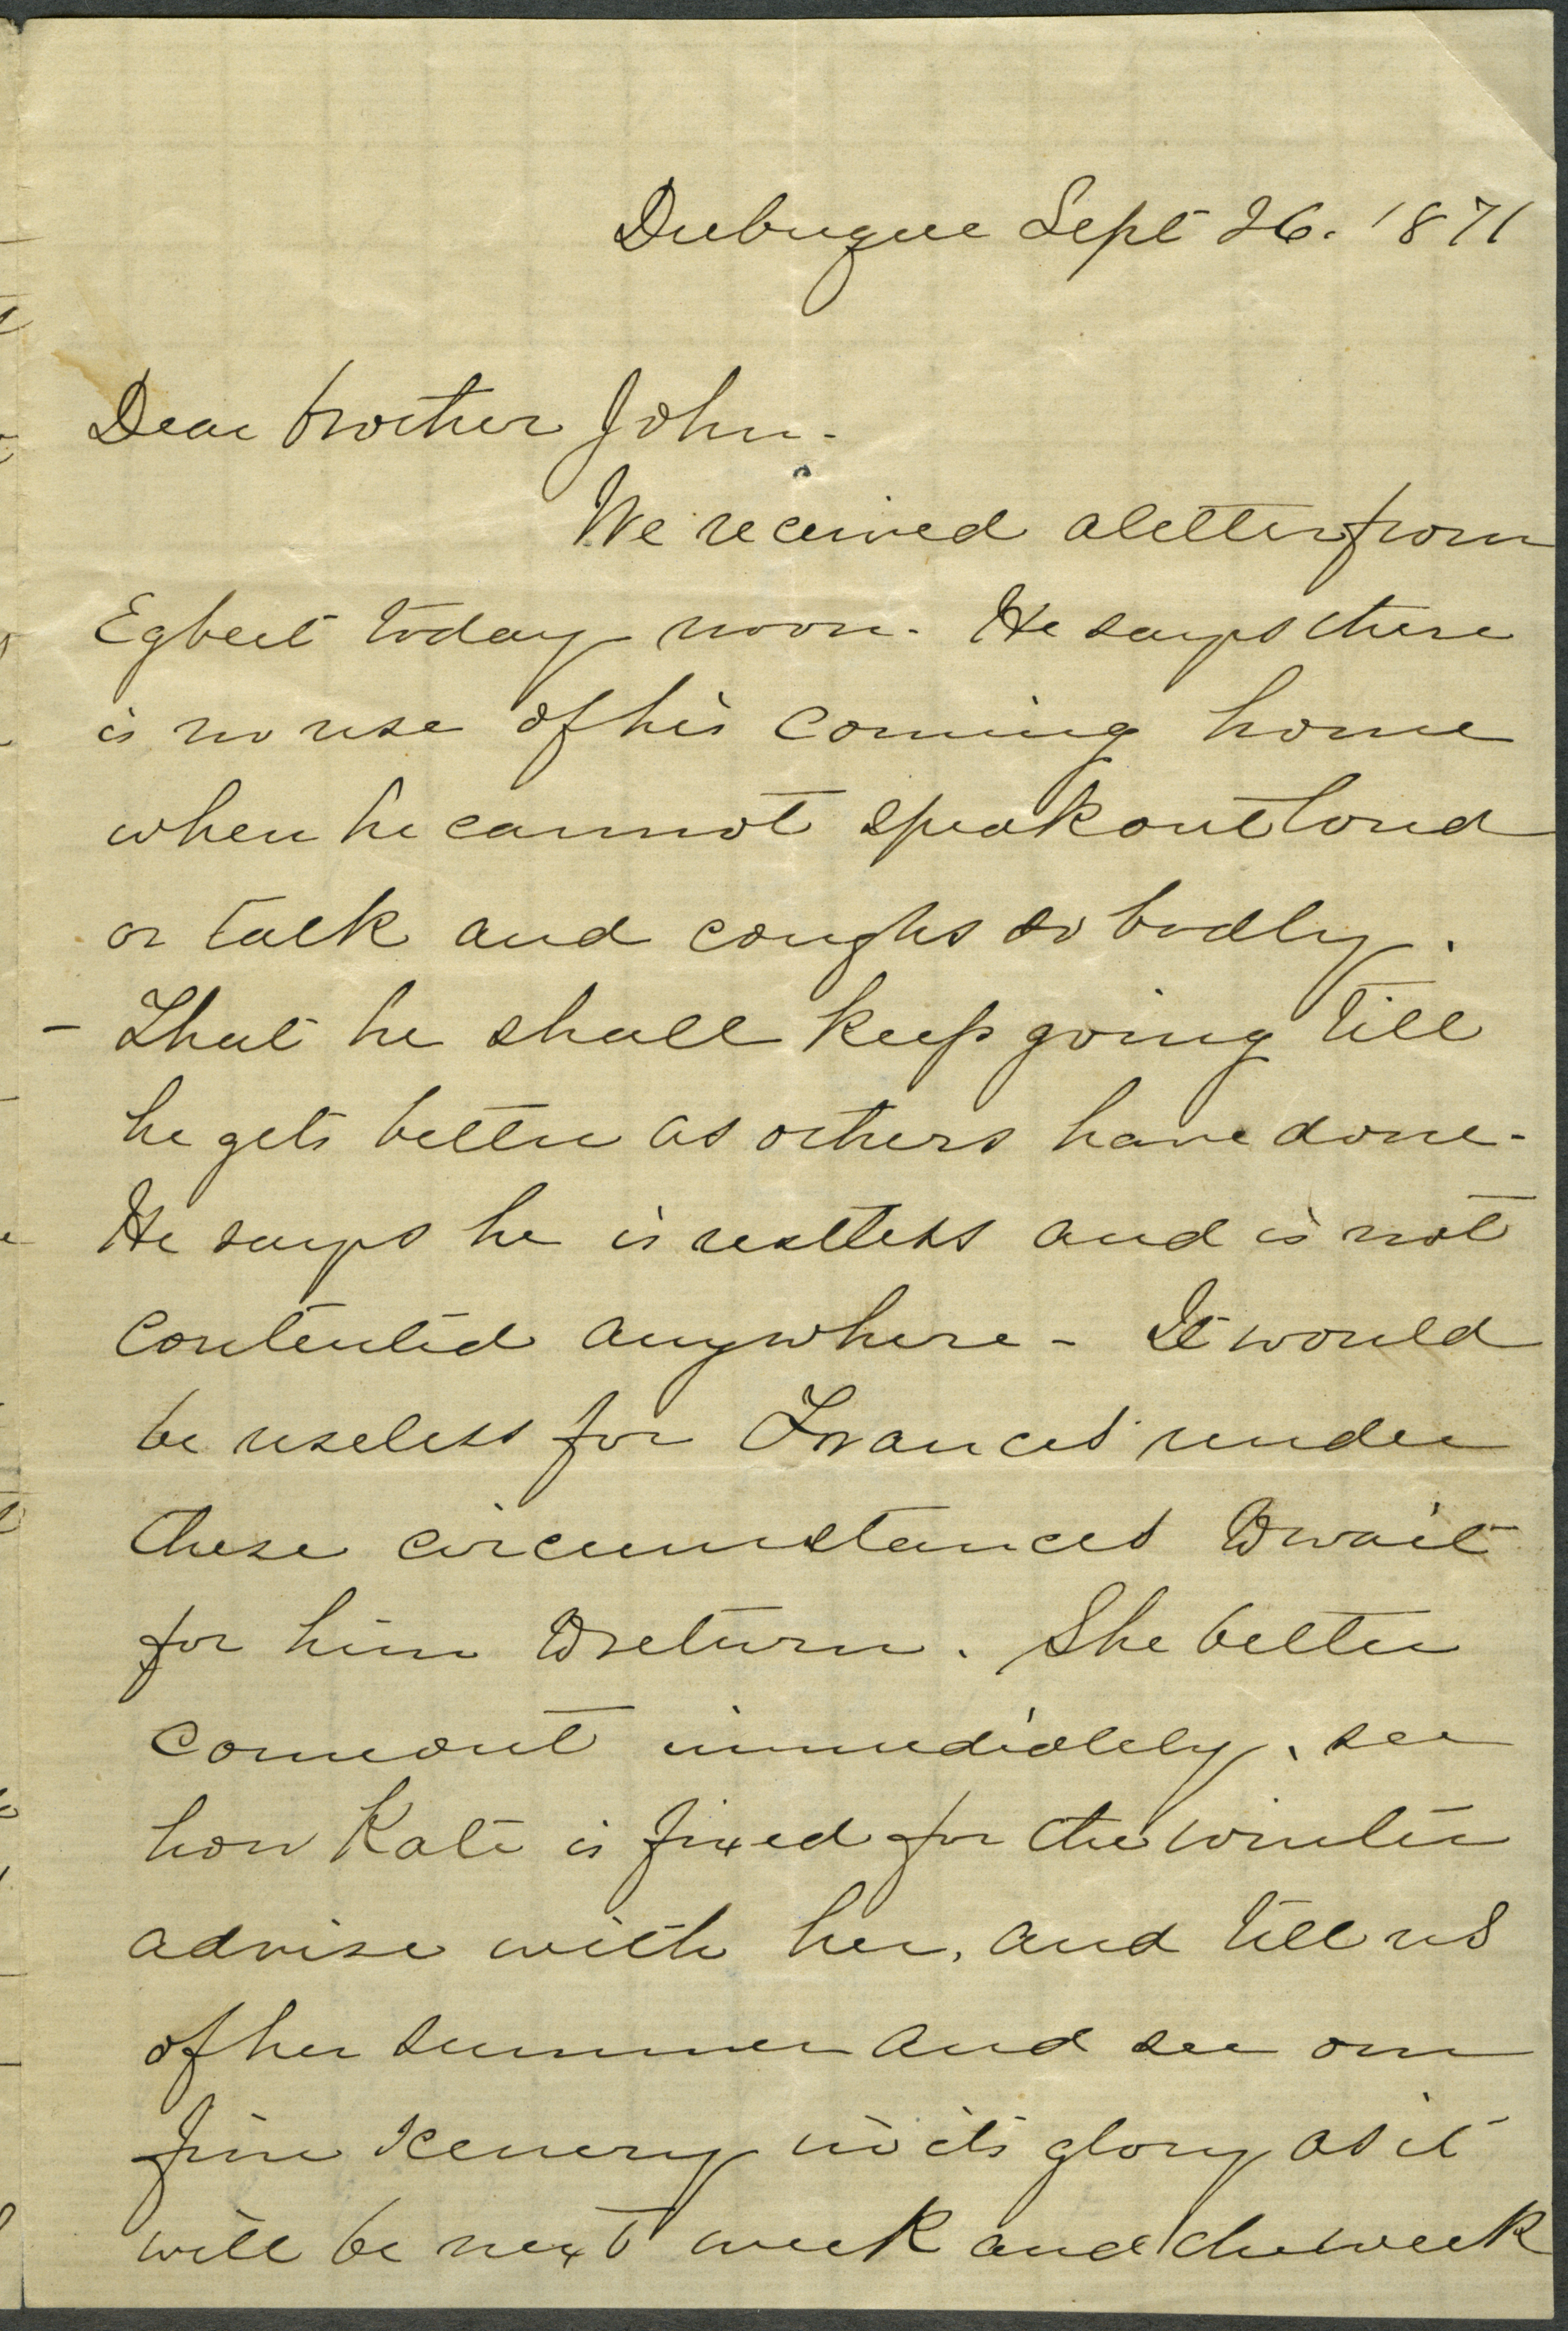 Dubuque Sept 26. 1871
Dear brother John.
We received a letter from
Egbert today noon. He says there
is no use of his coming home
when he cannot speak out loud
or talk and coughs so badly.
- That he shall keep going till
he gets better as others have done.
He says he is restless and is not
contented anywhere - It would
be useless for Frances under
these circumstances to wait
for him to return. She better
come out immediately, see
how Kate is fixed for the winter
advise with her, and tell us
of her summer and see our
fine scenery in its glory as it
will be next week and the week